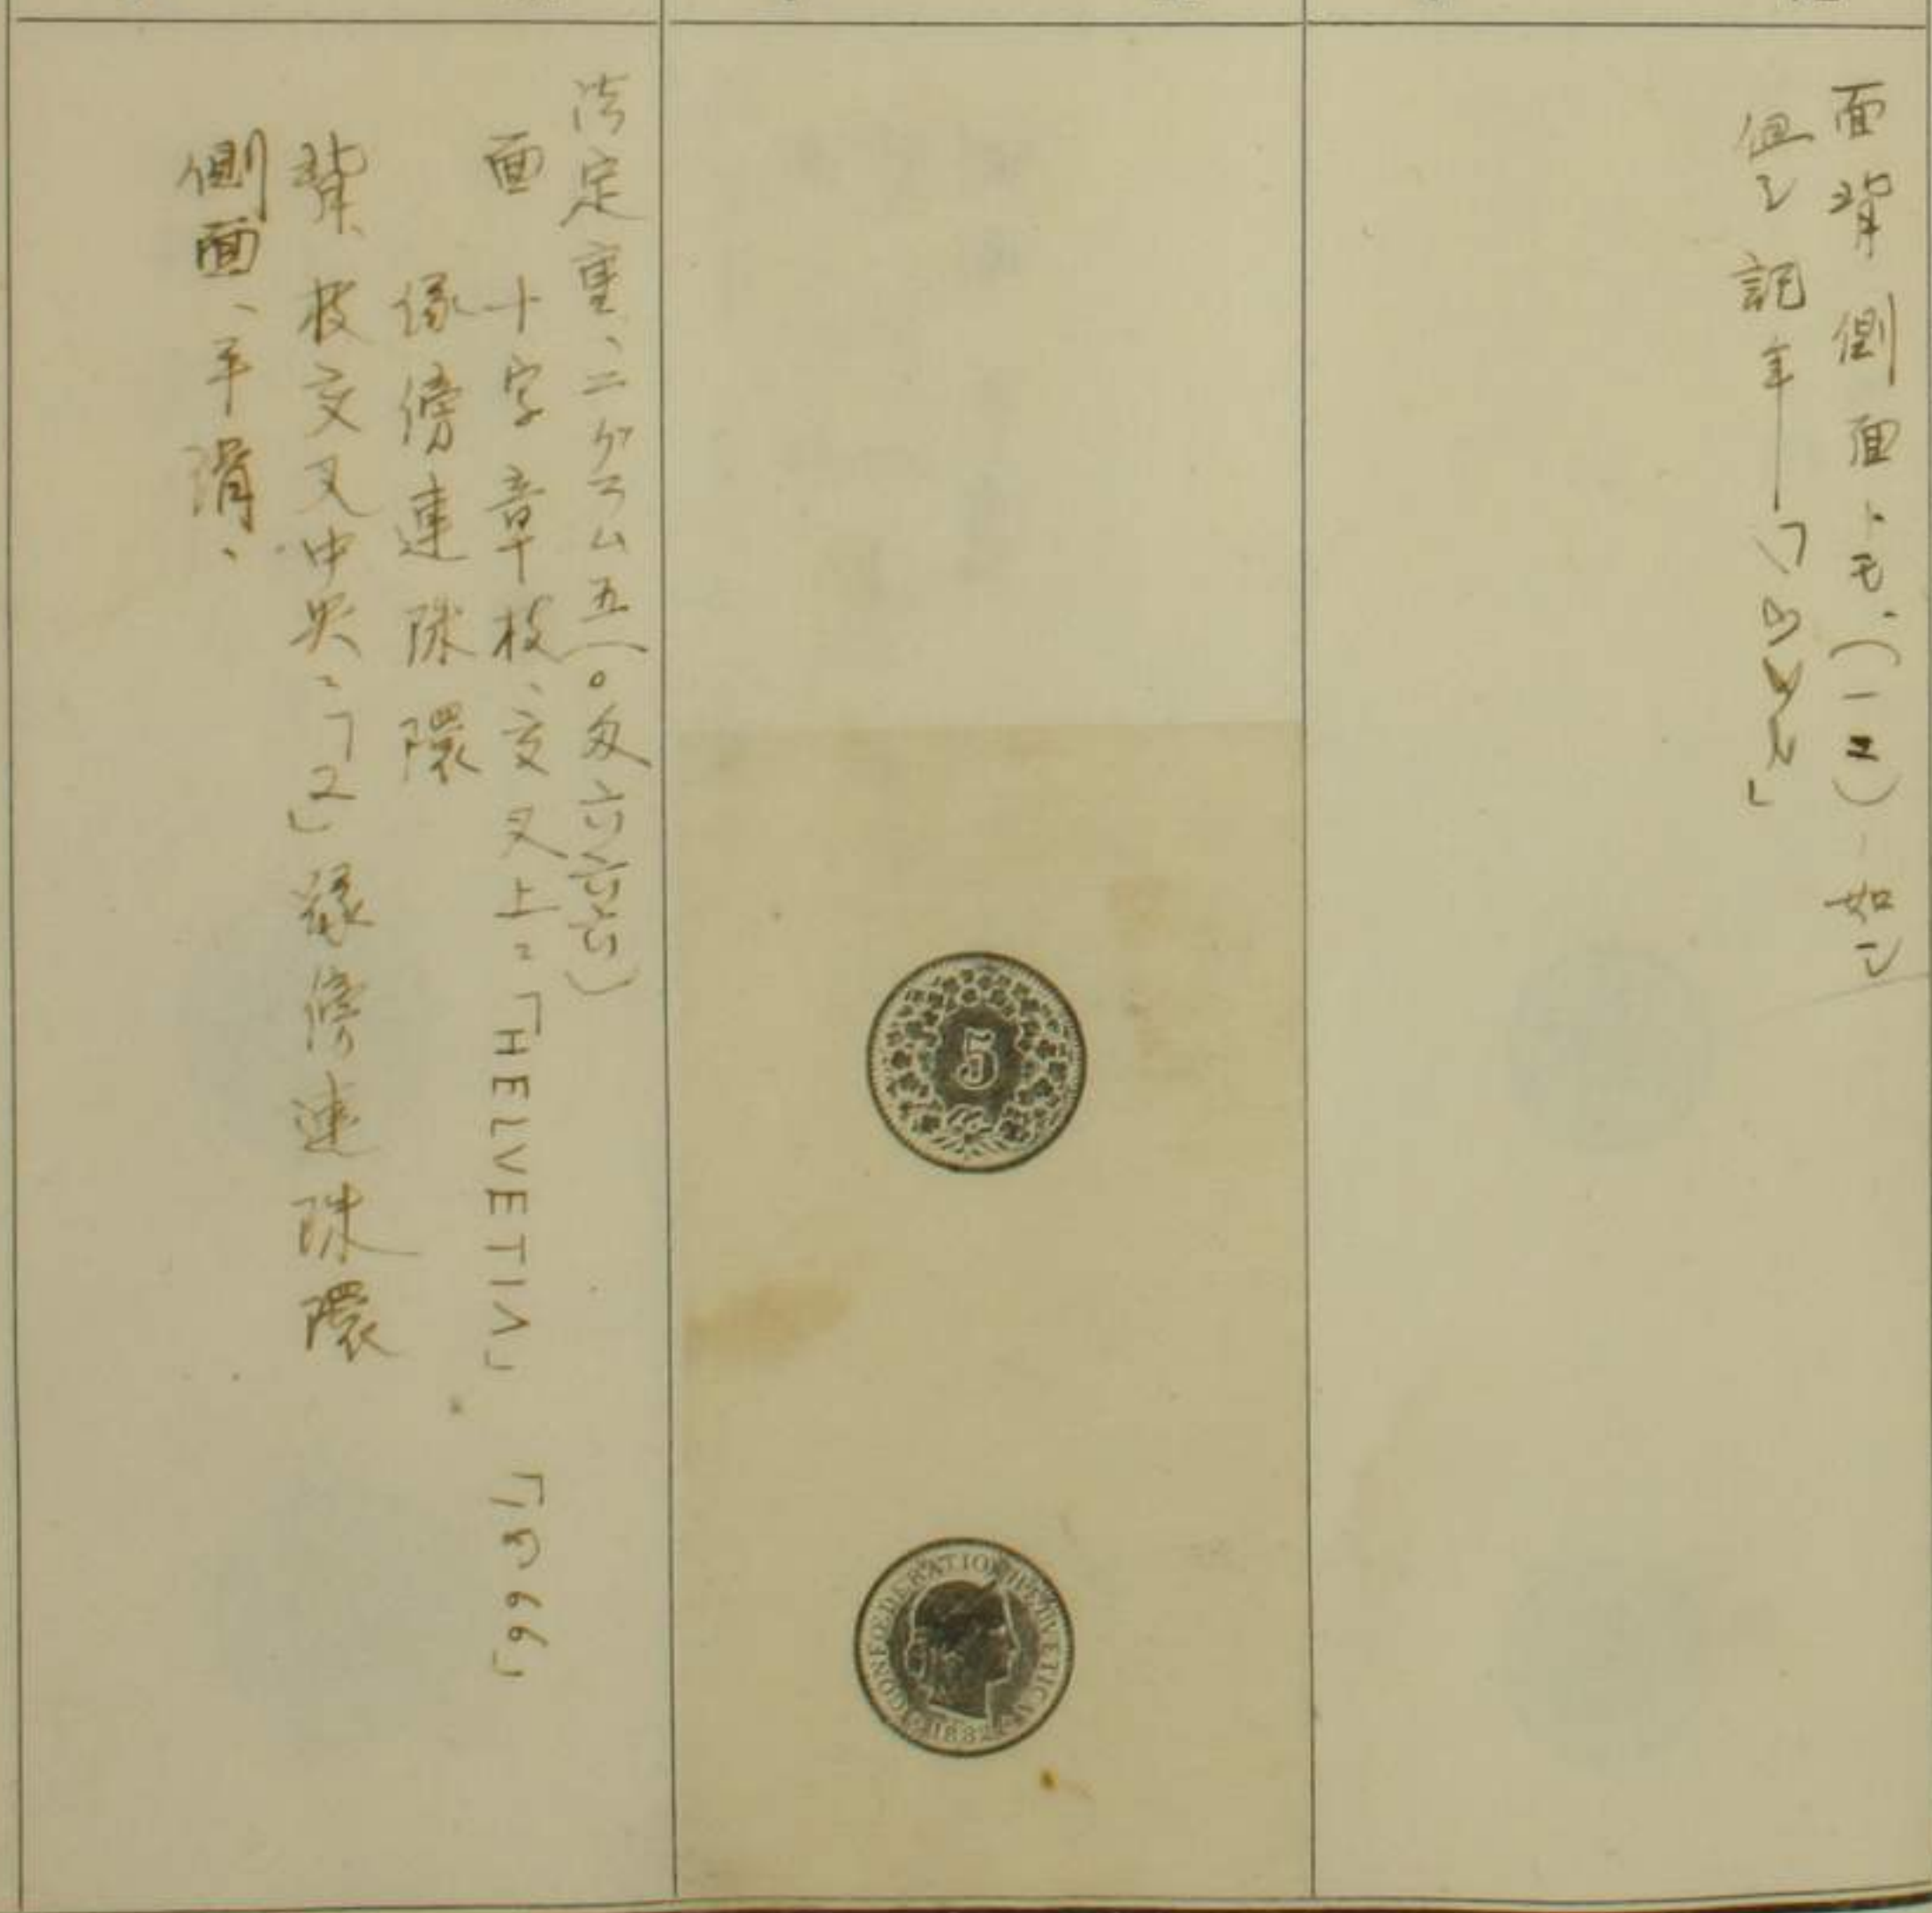 面背側面トモ、(一二)ノ如シ
但シ記年「1882」
5
CONFOEDERATIO HELVETICA
1882
法定重、二グラム五(〇匁六六六)
面 十字章枝、交叉上ニ「HELVETIA」 「1866」
縁傍連珠環
背、枝交叉中央ニ「2」縁傍連珠環
側面、平滑、